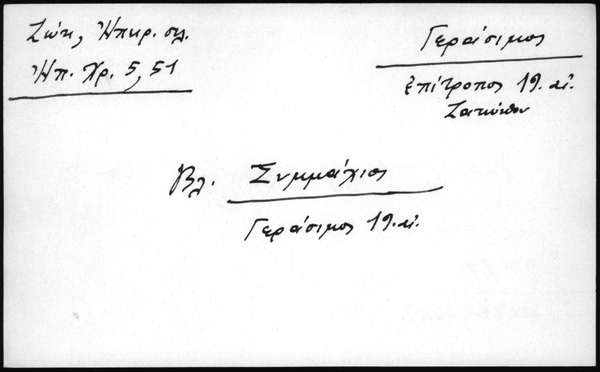 Ζώτ, Ἠπειρ. σελ.
Ἠπ. Χρ. 5, 51
Γεράσιμος
ἐπίτροπος 19. αἰ.
Ζακύνθου
Βλ. Συμμάχιος
Γεράσιμος 19. αἰ.